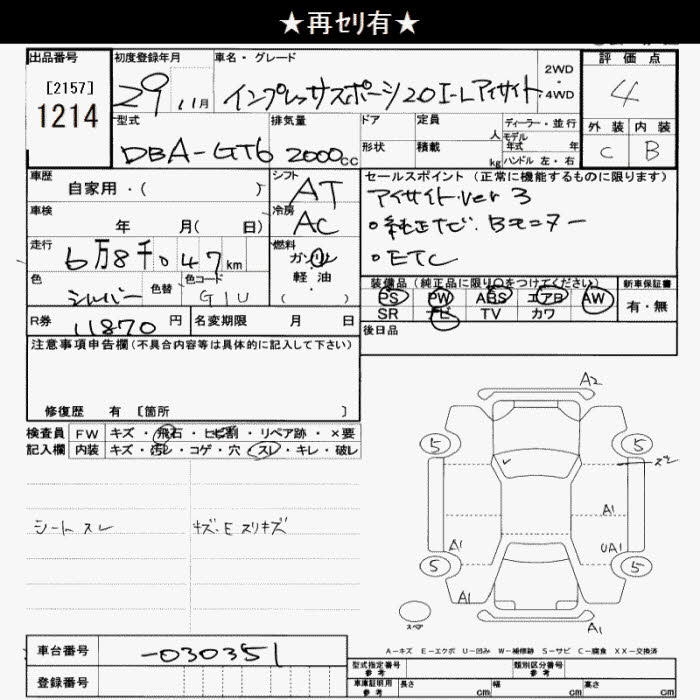 ★再セリ有★
出品番号 初度登録年月 車名・グレード 2WD・4WD 評価点
[2157] 29 11月 インプレッサスポーツ 2.0 I-L アイサイト 4
1214
型式 排気量 ドア 定員 人 ディーラー・並行 外装 内装
DBA-GT6 2000cc 形状 積載 kg モデル年式 年 ハンドル 左・右 C B
車歴 自家用・( ) シフト AT セールスポイント (正常に機能するものに限ります)
アイサイト ver 3
車検 年 月( 日) 冷房 AC ○純正ナビ.Bモニター
走行 6万8千047km 燃料 ガソリン・軽油 ( ) ○ETC
色 シルバー 色替 色コード G1U 装備品 (純正品に限り○をつけてください) 新車保証書
PS PW ABS エアB AW 有・無
SR TV カワ
R券 11870円 名変期限 月 日 後日品
注意事項申告欄 (不具合内容等は具体的に記入して下さい)
修復歴 有 [箇所 ]
検査員 FW キズ・飛石・ヒビ割・リペア跡・×要
記入欄 内装 キズ・汚レ・コゲ・穴・スレ・キレ・破レ
シートスレ キズ・E スリキズ
A2
5 5
スレ
A1
A1 UA1
5 5
A1 A1
スペア
A1
A-キズ E-エクボ U-凹み W-補修跡 S-サビ C-腐食 XX-交換済
車台番号 -030351
型式指定番号 参考 類別区分番号 参考
登録番号 車庫証明用 参考 長さ cm 幅 cm 高さ cm